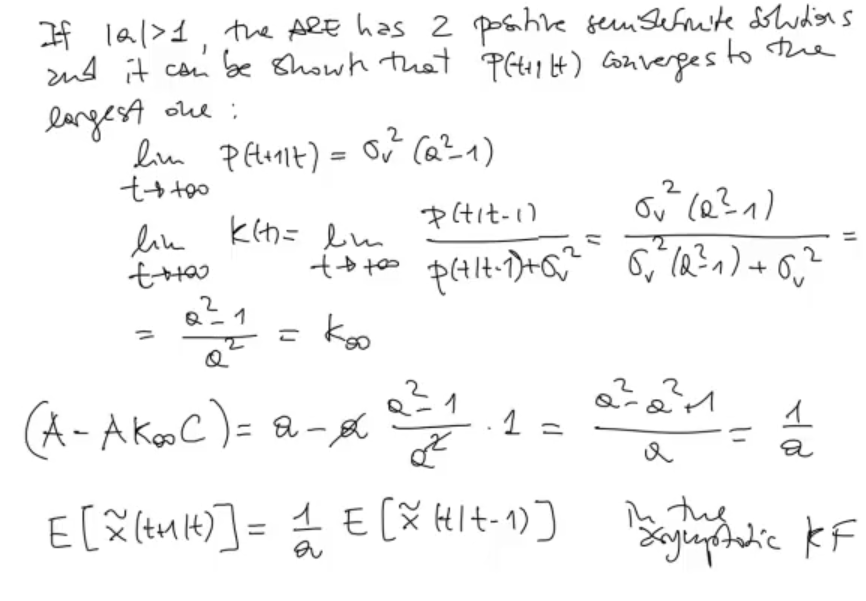 If |a|>1, the ARE has 2 positive semidefinite solutions
and it can be shown that P(t+1|t) converges to the
largest one :
lim t→+∞ P(t+1|t) = σv² (a²-1)
lim t→+∞ K(t) = lim t→+∞ P(t|t-1) / (P(t|t-1)+σv²) = σv² (a²-1) / (σv² (a²-1) + σv²) =
= (a²-1) / a² = K∞
(A - A K∞ C) = a - a (a²-1)/a² · 1 = (a²-a²+1)/a = 1/a
E[x̃(t+1|t)] = 1/a E[x̃(t|t-1)] in the
asymptotic KF